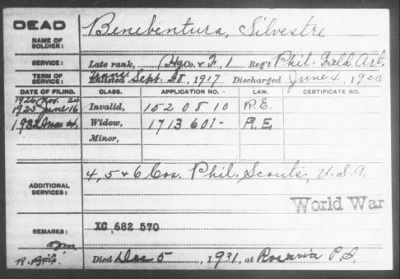 DEAD
NAME OF SOLDIER: Benebentura, Silvestre
SERVICE: Late rank, Hq Co. & F, 1 Reg't Phil. Field Art.
TERM OF SERVICE: Enlisted Sept. 28, 1917 Discharged June 4, 1920
DATE OF FILING. CLASS. APPLICATION NO. LAW. CERTIFICATE NO.
1920 Nov. 24
1925 June 16 Invalid, 1520810 R.E.
1932 Mar 24, Widow, 1713601 R.E.
Minor,
ADDITIONAL SERVICES: 4, 5 & 6 Cos. Phil. Scouts, U.S.A.
World War
REMARKS: XC 682 570
Died Dec 5, 1931, at P.I.